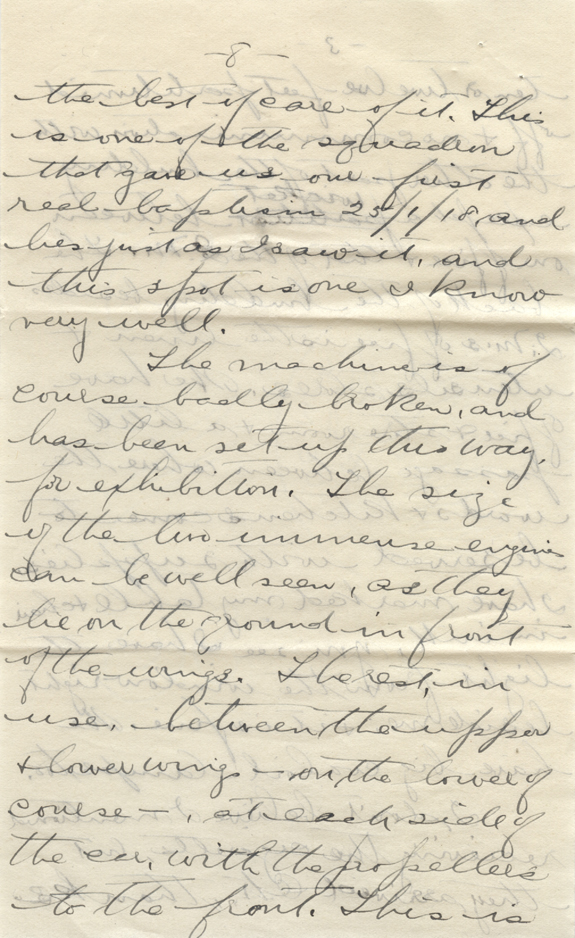 -8-
the best of care of it. This
is one of the squadron
that gave us our first
real baptism 25/1/18 and
lies just as I saw it, and
this spot is one I know
very well.
The machine is of
course badly broken, and
has been set up this way,
for exhibition. The size
of the two immense engines
can be well seen, as they
lie on the ground in front
of the wings. They rest, in
use, between the upper
& lower wings - on the lower of
course -, at each side of
the car, with the propellers
to the front. This is